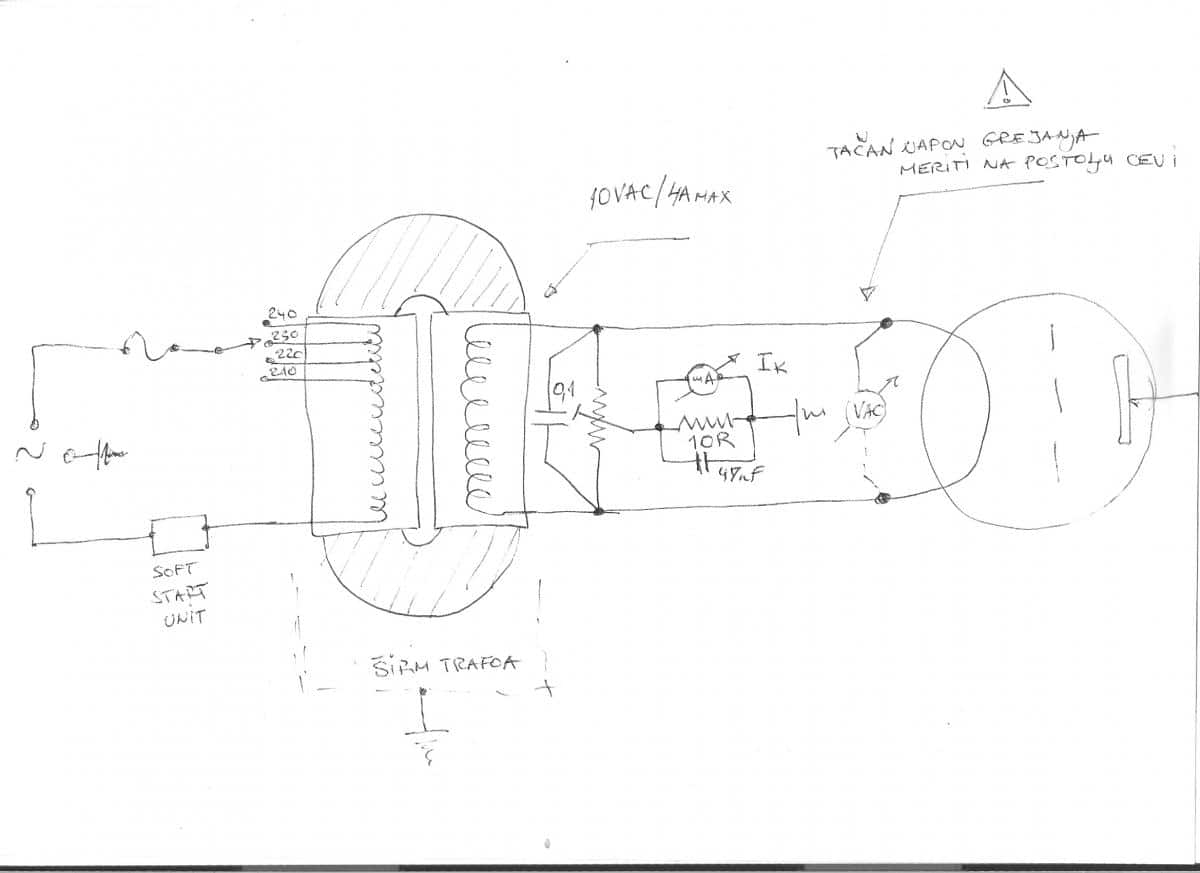 TAČAN NAPON GREJANJA
MERITI NA POSTOLJU CEVI
10VAC/4A MAX
240
230
220
210
0,1
mA
IK
10R
47nF
VAC
SOFT
START
UNIT
ŠIRM TRAFOA